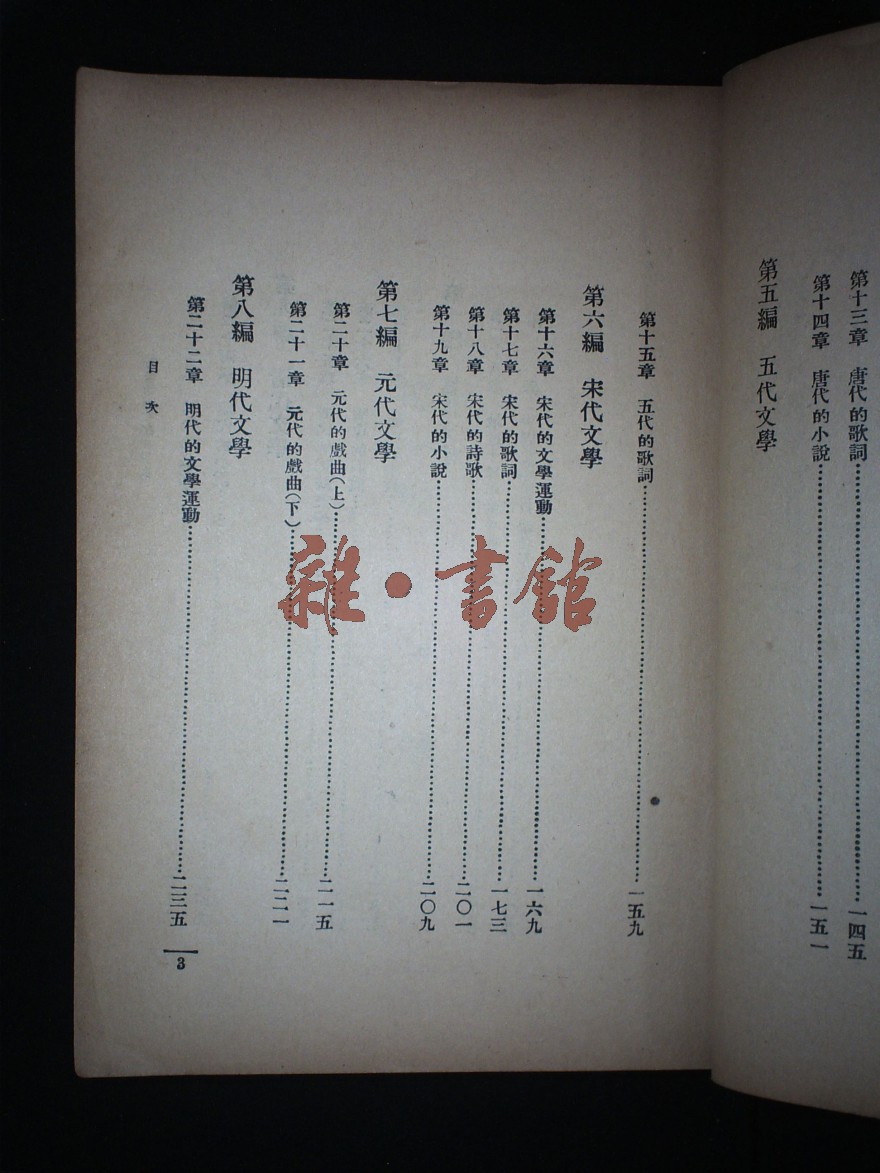 第十三章　唐代的歌詞……一四五
第十四章　唐代的小說……一五一
第五編　五代文學
第十五章　五代的歌詞……一五九
第六編　宋代文學
第十六章　宋代的文學運動……一六九
第十七章　宋代的歌詞……一七三
第十八章　宋代的詩歌……二〇一
第十九章　宋代的小說……二〇九
第七編　元代文學
第二十章　元代的戲曲(上)……二一五
第二十一章　元代的戲曲(下)……二二一
第八編　明代文學
第二十二章　明代的文學運動……二三五
目次
3
雜·書館